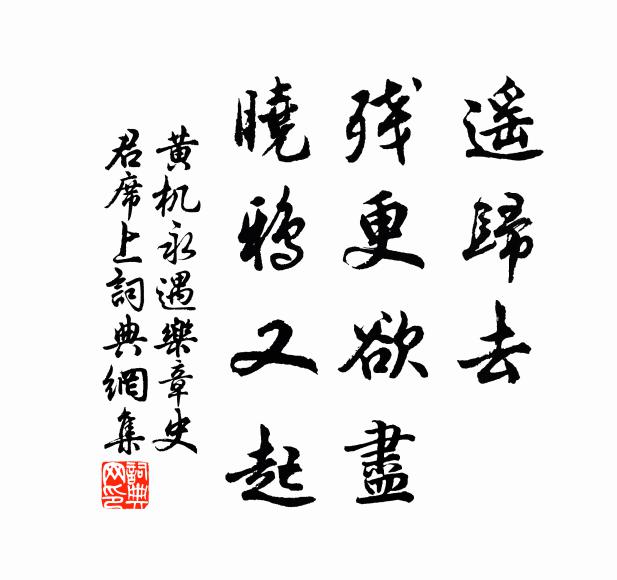 遥歸去
残更欲盡
曉鴉又起
黄机永遇樂章史
君席上詞典網集
詞典网印